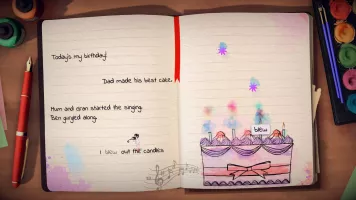 Today's my birthday!
Dad made his best cake.
Mum and
started the singing.
Ben gurgled along.
I blew out the candles.
blew